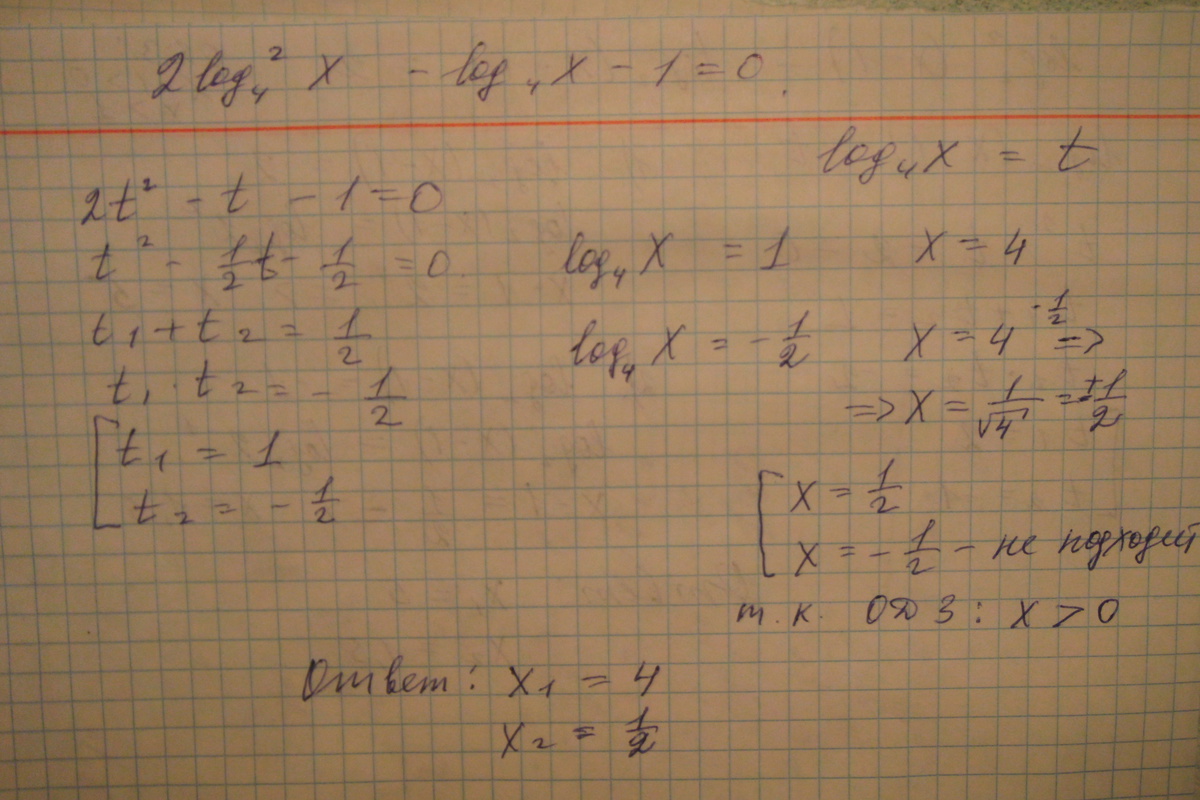 2log₄² x - log₄ x - 1 = 0.
log₄ x = t
2t² - t - 1 = 0
t² - 1/2 t - 1/2 = 0
t₁ + t₂ = 1/2
t₁ · t₂ = - 1/2
[ t₁ = 1
t₂ = - 1/2
log₄ x = 1 x = 4
log₄ x = - 1/2 x = 4^(-1/2) =>
=> x = 1/√4 = ± 1/2
[ x = 1/2
x = - 1/2 - не подходит
т.к. ОДЗ: x > 0
Ответ: x₁ = 4
x₂ = 1/2